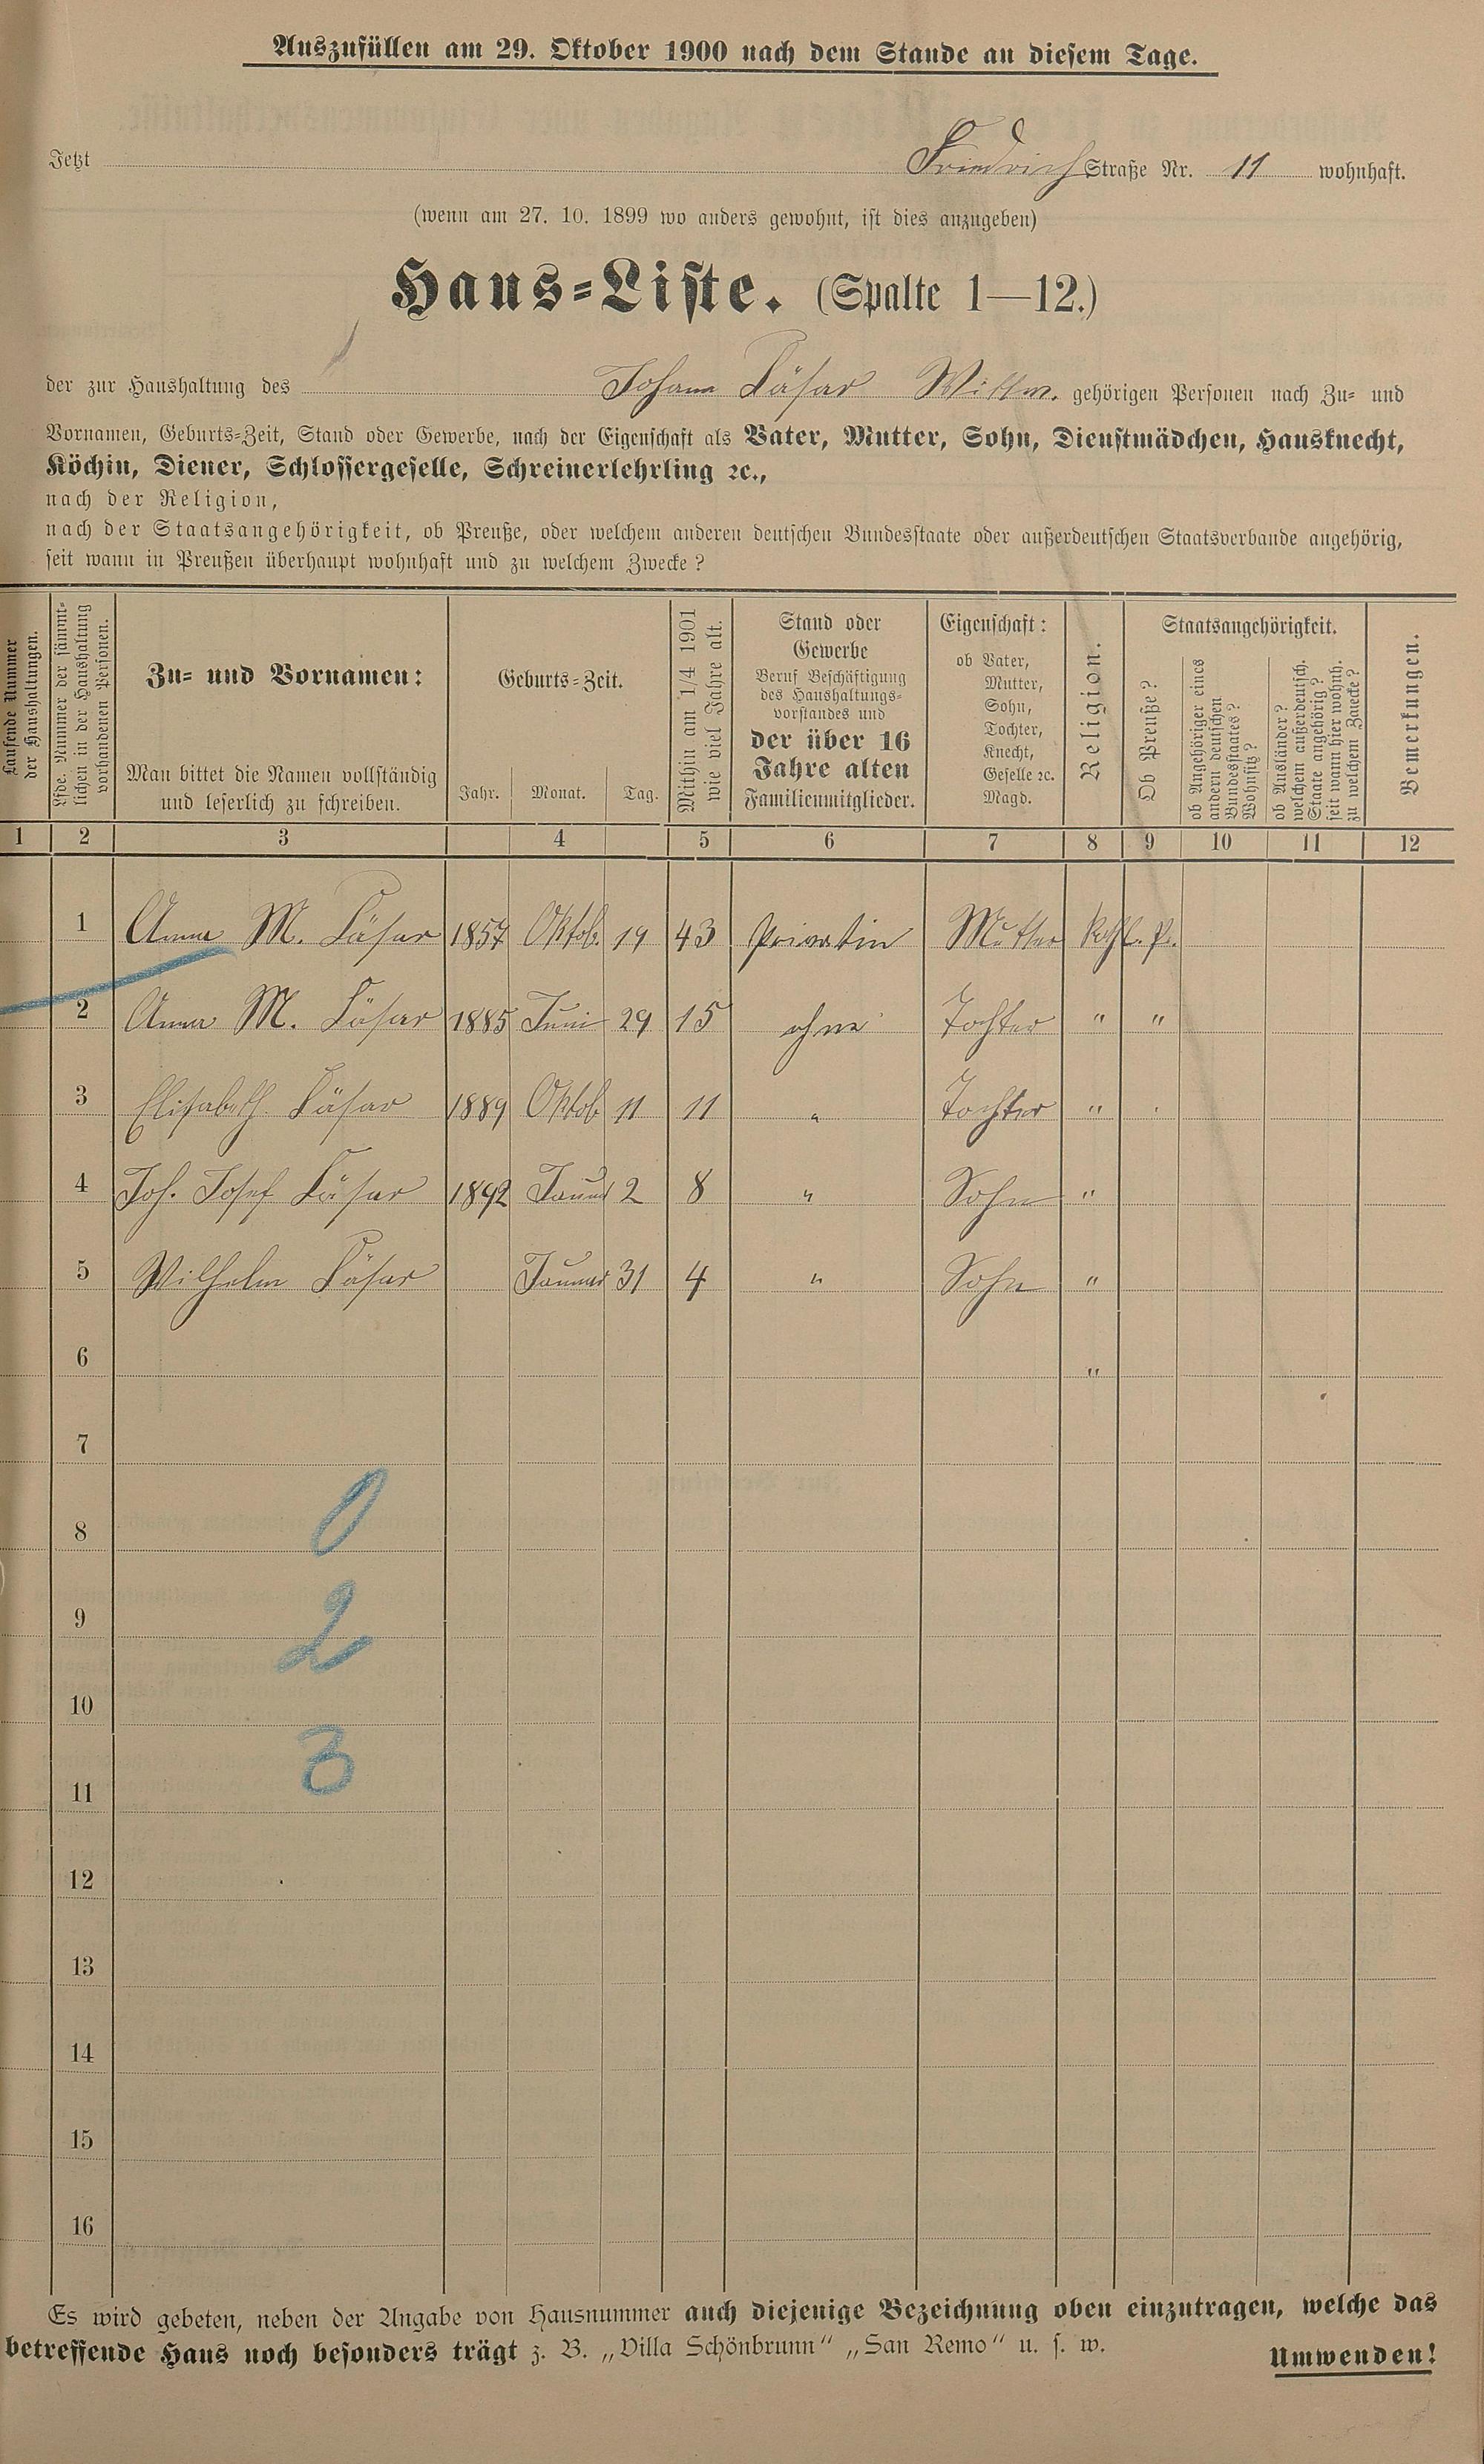 Auszufüllen am 29. Oktober 1900 nach dem Stande an diesem Tage.
Jetzt Friedrich Straße Nr. 11 wohnhaft.
(wenn am 27. 10. 1899 wo anders gewohnt, ist dies anzugeben)
Haus-Liste. (Spalte 1—12.)
der zur Haushaltung des Johann Wittw. gehörigen Personen nach Zu- und
Vornamen, Geburts-Zeit, Stand oder Gewerbe, nach der Eigenschaft als Vater, Mutter, Sohn, Dienstmädchen, Hausknecht,
Köchin, Diener, Schlossergeselle, Schreinerlehrling ꝛc.,
nach der Religion,
nach der Staatsangehörigkeit, ob Preuße, oder welchem anderen deutschen Bundesstaate oder außerdeutschen Staatsverbande angehörig,
seit wann in Preußen überhaupt wohnhaft und zu welchem Zwecke?
Laufende Nummer
der Haushaltungen.
Lfde. Nummer der sämmt-
lichen in der Haushaltung
vorhandenen Personen.
Zu- und Vornamen:
Man bittet die Namen vollständig
und leserlich zu schreiben.
Geburts-Zeit.
Jahr. Monat. Tag.
Mithin am 1/4 1901
wie viel Jahre alt.
Stand oder
Gewerbe
Beruf Beschäftigung
des Haushaltungs-
vorstandes und
der über 16
Jahre alten
Familienmitglieder.
Eigenschaft:
ob Vater,
Mutter,
Sohn,
Tochter,
Knecht,
Geselle ꝛc.
Magd.
Religion.
Staatsangehörigkeit.
Ob Preuße?
ob Angehöriger eines
andern deutschen
Bundesstaates?
Wohnsitz?
ob Ausländer?
welchem außerdeutsch.
Staate angehörig?
seit wann hier wohnh.
zu welchem Zwecke?
Bemerkungen.
1 2 3 4 5 6 7 8 9 10 11 12
1 Anna M. 1857 Oktob. 19 43 Privatin Mutter Kath. Pr.
2 Anna M. 1885 Juni 29 15 ohne Tochter " "
3 Elisabeth 1889 Oktob 11 11 " Tochter "
4 Joh. Josef 1892 2 8 " Sohn "
5 Wilhelm Januar 31 4 " Sohn "
6 "
7
8 0
9 2
10
11 3
12
13
14
15
16
Es wird gebeten, neben der Angabe von Hausnummer auch diejenige Bezeichnung oben einzutragen, welche das
betreffende Haus noch besonders trägt z. B. „Villa Schönbrunn“ „San Remo“ u. s. w.
Umwenden!